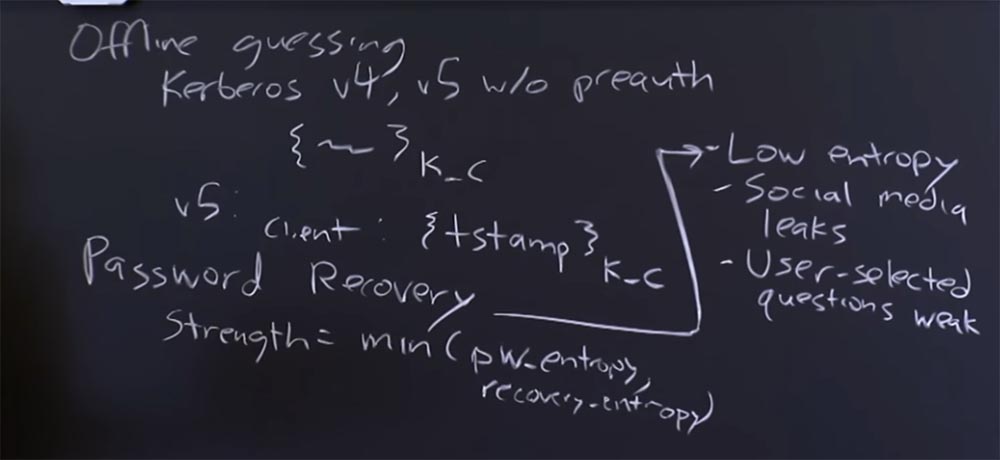 Offline guessing
Kerberos v4, v5 w/o preauth
{ ~ }K_C
v5:
Client: {tstamp}K_C
Password Recovery
Strength = min(pw_entropy,
recovery_entropy)
- Low entropy
- Social media
leaks
- User-selected
questions weak